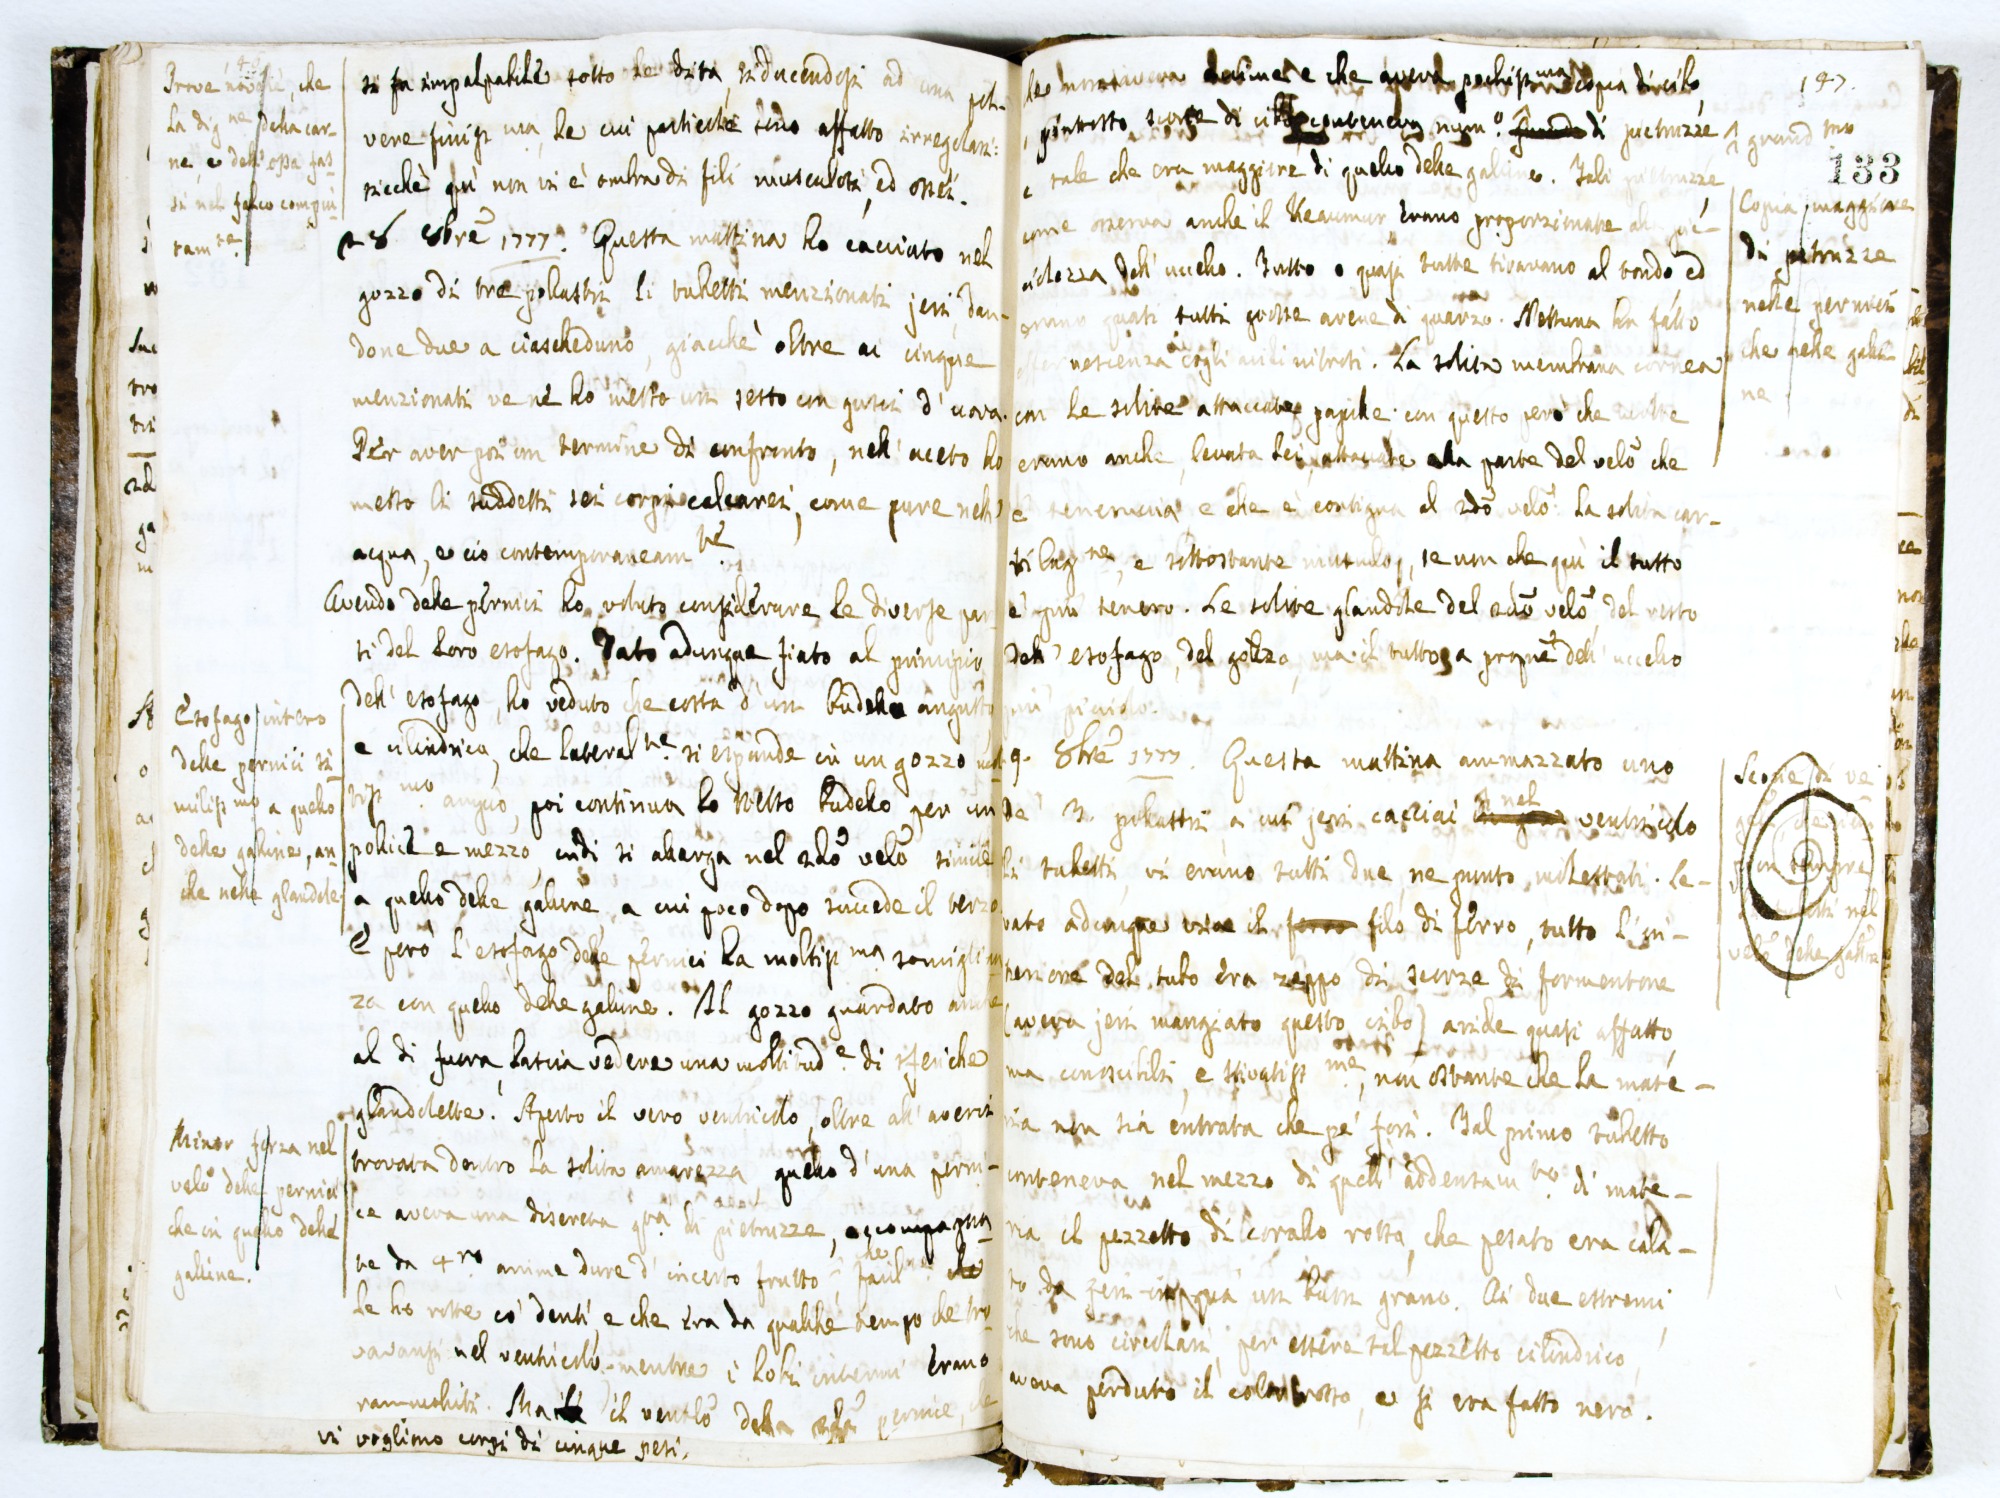 Prove novelle, che
la dig.ne della car-
ne, e dell'ossa fas
si nel falco compiu-
tam.te.
si fa impalpabile sotto le dita, riducendosi ad una pol-
vere finiss.ma, le cui particelle sono affatto irregolari:
sicchè quì non vi è ombra di fili musculosi, ed ossei.
28 8bre 1777. Questa mattina ho cacciato nel
gozzo di tre pollastri li tubetti menzionati jeri, dan-
done due a ciascheduno, giacchè oltre ai cinque
menzionati ve nè ho messo un sesto con gusci d'uova.
Per aver poi un termine di confronto, nell'aceto ho
messo li suddetti sei corpi calcarei, come pure nell'
acqua, e ciò contemporaneam.te.
Avendo delle pernici ho voluto considerare le diverse par-
ti del loro esofago. Dato adunque fiato al principio
dell'esofago, ho veduto che costa d'un budello angusto,
e cilindrico, che lateral.te si espande in un gozzo
poi continua lo stesso budello per un
pollice e mezzo, indi si alarga nel 2do velo simile
a quello delle galline, a cui poco dopo succede il terzo
È però l'esofago delle pernici ha moltiss.ma somiglian
za con quello delle galline. Al gozzo guardato anche
al di fuora lascia vedere una moltitud.e di sferiche
glandolette. Aperto il vero ventricolo, oltre all'averci
trovata dentro la solita amarezza quello d'una perni-
ce aveva una discreta q.tà di pietruzze, accompagna
te da 4ro anime dure d'incerto frutto, che
le ho rotte co' denti, e che era da qualche tempo che tro
vavansi nel ventricolo, mentre i lobi interni erano
rammolliti. Ma il ventlo della 2da pernice, che
vi vogliono corpi di cinque pesi.
Esofago intero
delle pernici si-
miliss.mo a quello
delle galline, an
che nelle glandole
Minor forza nel
velo delle pernici
che in quello delle
galline.
147.
133
e che aveva pochiss.ma copia di cibo,
piuttosto scorze di conteneva num.o di pietruzze
grand.mo
e tale che era maggiore di quello delle galline. Tali pietruzze,
come osserva anche il Reaumur erano proporzionate alla pic-
ciolezza dell'uccello. Tutte o quasi tutte tiravano al tondo, ed
erano quasi tutti grosse arene di quarzo. Nessuna ha fatto
effervescenza cogli acidi nitrosi. La solita membrana cornea
con le solite attaccate papille; con questo però che molte
erano anche, levata lei, attaccate alla parte del velo che
è teneruccia e che è contigua al 2do velo. La solita car-
tilag.ne, e sottostante muscolo, se non che quì il tutto
è più tenero. Le solite glandole del 2do velo, del resto
dell'esofago, del gozzo, ma il tutto a prop.ne dell'uccello
più picciolo.
Copia maggiore
di petruzze
nelle pernici
che nelle galli-
ne
29. 8bre 1777. Questa mattina ammazzato uno
de' 3. pollastri a cui jeri cacciai nel ventricolo
li tubetti, vi erano tutti due, ne punto molestati. Le-
vato adunque il filo di ferro, tutto l'in-
teriore del tubo era zeppo di scorze di formentone
(aveva jeri mangiato questo cibo) aride quasi affatto
ma conoscibili, e stivatiss.me, non ostante che la mate-
ria non sia entrata che pe' fori. Tal primo tubetto
conteneva nel mezzo di quell'addensam.to di mate-
ria il pezzetto di corallo rosso, che pesato era cala-
to da jeri in quà un buon grano. Ai due estremi,
che sono circolari, per essere tal pezzetto cilindrico,
aveva perduto il color rosso, e si era fatto nero.
velo delle galline